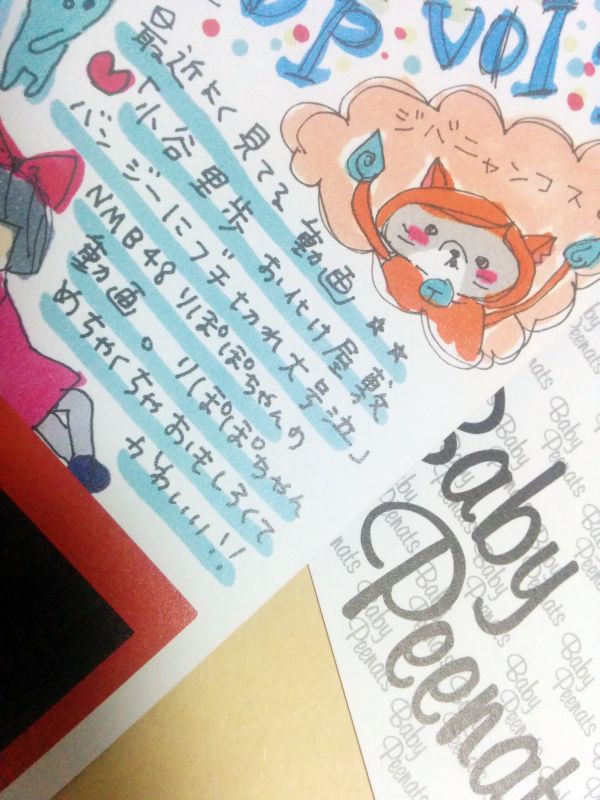 vol
最近よく見てる動画★★
♥「小谷里歩 お化け屋敷
バンジーにブチ切れ大号泣」
NMB48りぽぽちゃんの
動画。りぽぽちゃん
めちゃくちゃおもしろくて
かわいい!!
ジバニャンコス
Baby
Peenats